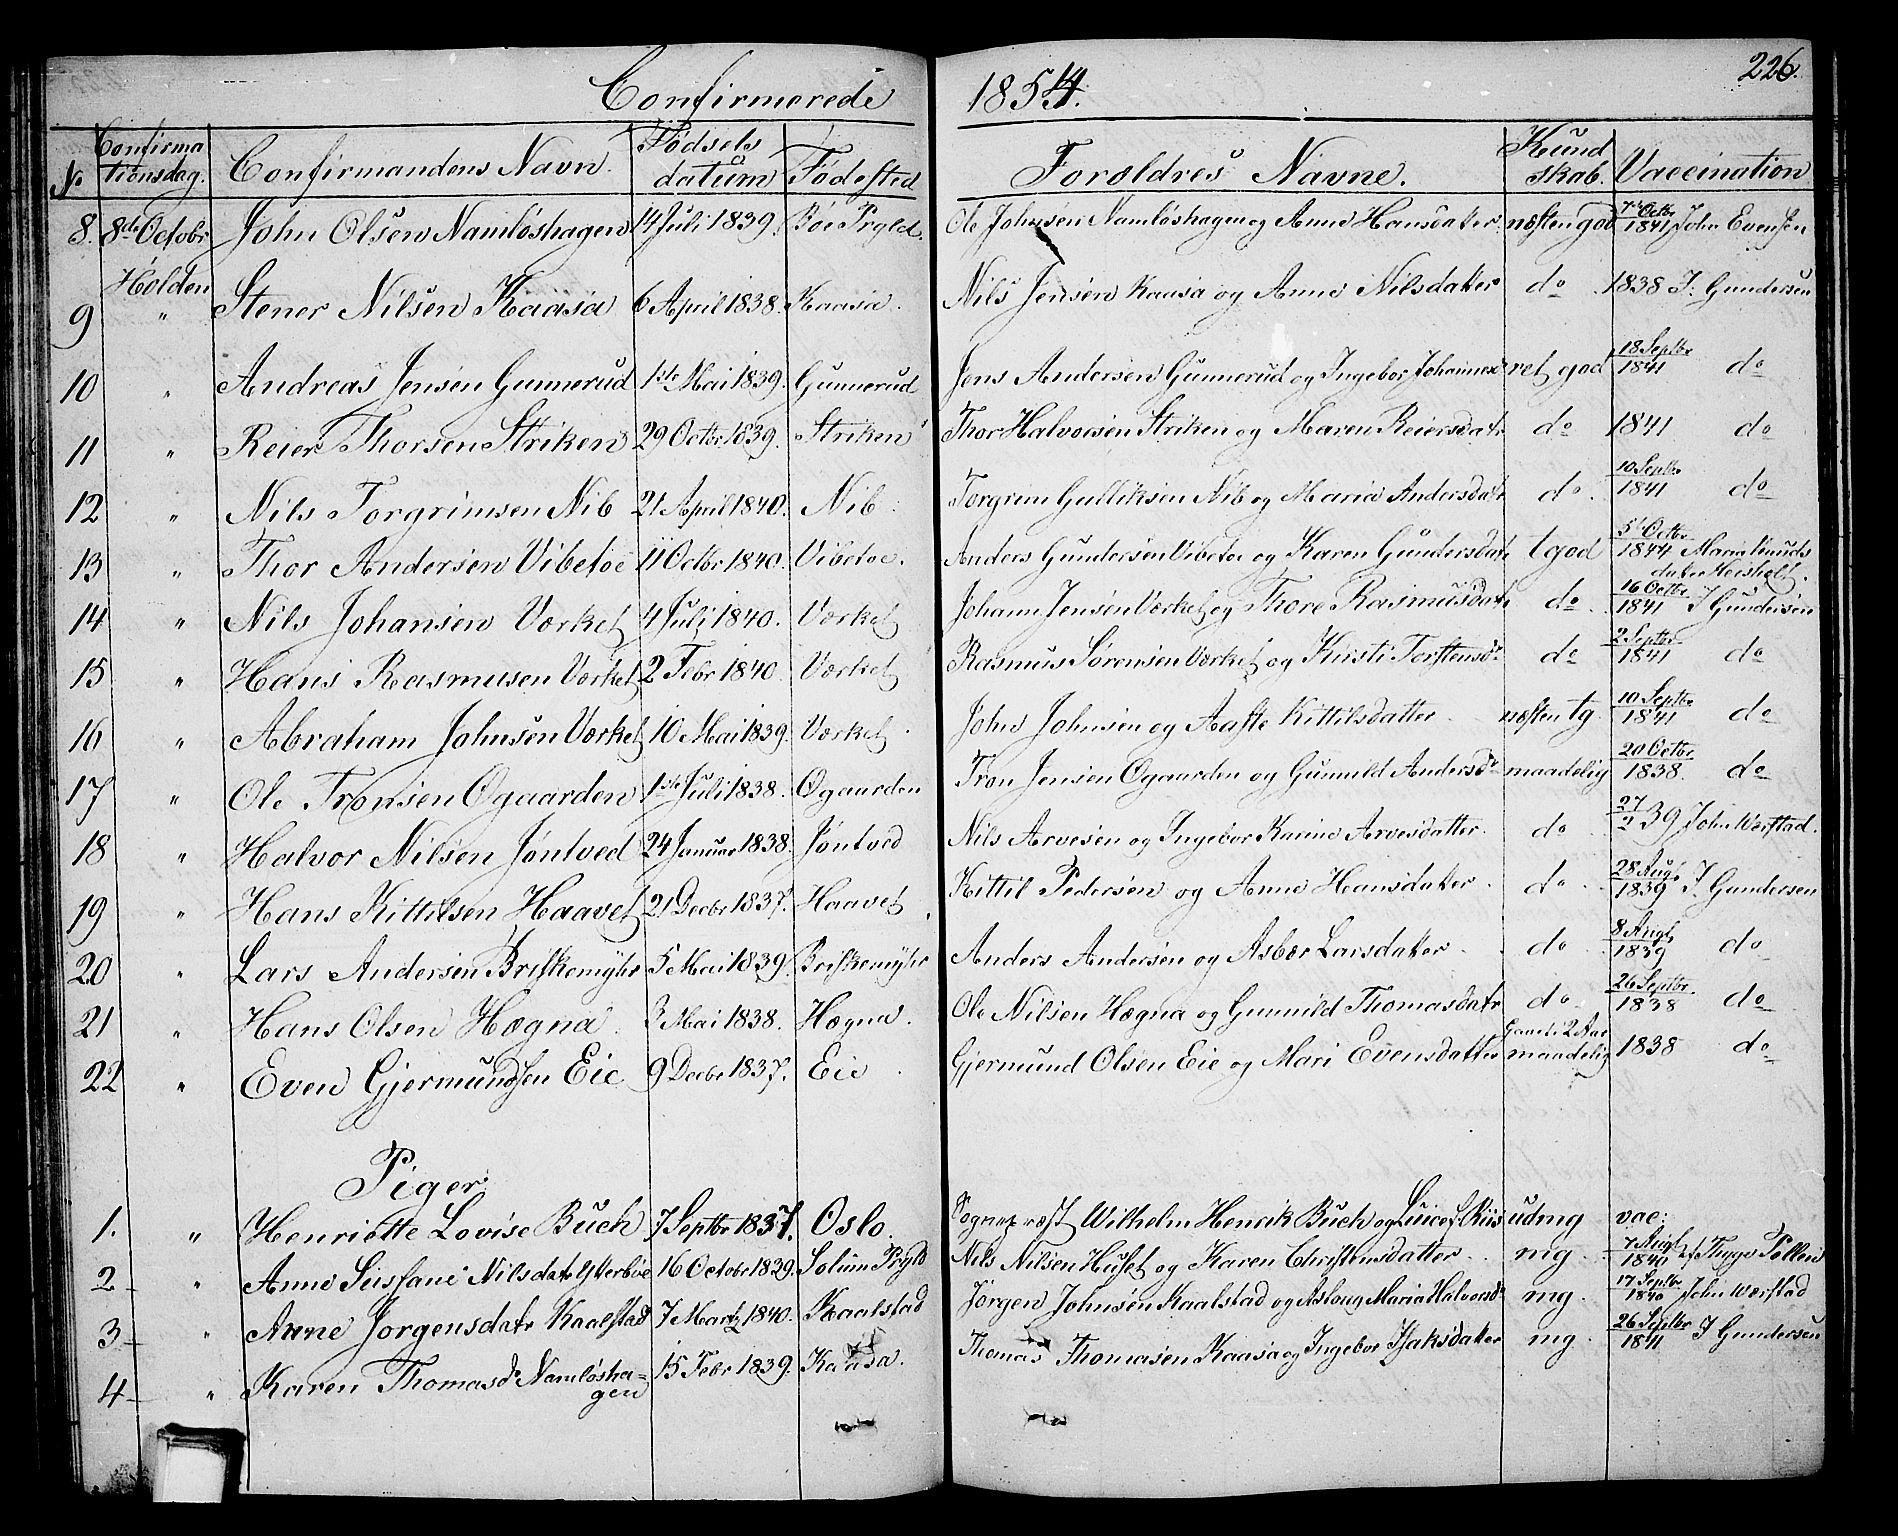 Confirmerede 1854. 226.
No Confirmationsdag. Confirmandens Navn. Fødsels datum Fødested Forældres Navne. Kundskab. Vaccination
8. 8de Octobr John Olsen Namløshagen 14 Juli 1839. Bøe Prgld. Ole Johnsen Namløshagen og Anne Hansdater. næsten god 7de Octbr 1841 John Evensen
Holden
9 " Stener Nilsen Kaasa 6 April 1838. Kaasa. Nils Jensen Kaasa og Anne Nilsdater do 1838 J. Gundersen
10 " Andreas Jensen Gunnerud 1ste Mai 1839. Gunnerud Jens Andersen Gunnerud og Ingebor Johannesd ret god 18 Septbr 1841 do
11 " Reier Thorsen Striken 29 Octbr 1839. Striken Thor Halvorsen Striken og Maren Reiersdatr do 1841 do
12 " Nils Torgrimsen Nib 21 April 1840. Nib. Torgrim Gulliksen Nib og Maria Andersdatr do. 10 Septbr 1841 do
13 " Thor Andersen Vibetoe 11 Octbr 1840. Vibetoe. Anders Gundersen Vibetoe og Karen Gundersdatr tgod 5te Octbr 1844 Maria Knudsdater Hersholt.
14 " Nils Johansen Værket 4 Juli 1840. Værket Johann Jensen Værket og Thore Rasmusdatr do. 16 Octbr 1841 J Gundersen
15 " Hans Rasmusen Værket 2 Febr 1840. Værket Rasmus Sørensen Værket og Kirsti Torstensdr do 2 Septbr 1841 do
16 " Abraham Johnsen Værket 10 Mai 1839. Værket. John Johnsen og Aaste Kittilsdatter. næsten tg. 10 Septbr 1841 do
17 " Ole Tronsen Øgaarden 1ste Juli 1838. Øgaarden Tron Jensen Øgaarden og Gunnild Andersdr maadelig 20 Octbr 1838. do
18 " Halvor Nilsen Jøntved 24 Januar 1838. Jøntved Nils Arvesen og Ingebor Karine Arvesdatter. do. 27/2 39 John Værstad.
19 " Hans Kittilsen Haavet 21 Decbr 1837. Haavet. Kittil Pedersen og Anne Hansdater. do. 28 Aug. 1839 J. Gundersen
20 " Lars Andersen Briskemyhr 5 Mai 1839. Briskemyhr Anders Andersen og Asbær Larsdater. do 8 Augt 1839 do
21 " Hans Olsen Hægna. 3 Mai 1838. Hægna. Ole Nilsen Hægna og Gunnild Thomasdatr do. 26 Septbr. 1838 do
22 " Even Gjermundsen Eie 9 Decbr 1837. Eie. Gjermund Olsen Eie og Mari Evensdatter Gaaet i 2 Aar maadelig 1838 do
Piger
1. " Henriette Lovise Buch 7 Septbr 1837. Oslo. Sognepræst Wilhelm Henrik Buch og f. Riis udmg vac:
2 " Anne Nilsdatr Ytterbøe 16 Octobr 1839. Solum Prgld Nils Nilsen Huset og Karen Christensdatter. mg. 7 Augt 1840 af
3 " Anne Jorgensdatr Kaalstad 7 Martz 1840. Kaalstad Jörgen Johnsen Kaalstad og Aslaug Maria Halvorsdr mg. 17 Septbr 1840 John Værstad
4 " Karen Thomasdr Namløshagen 15 Febr 1839. Kaasa. Thomas Thomasen Kaasa og Ingebor Isaksdater mg. 26 Septbr 1841 J Gundersen